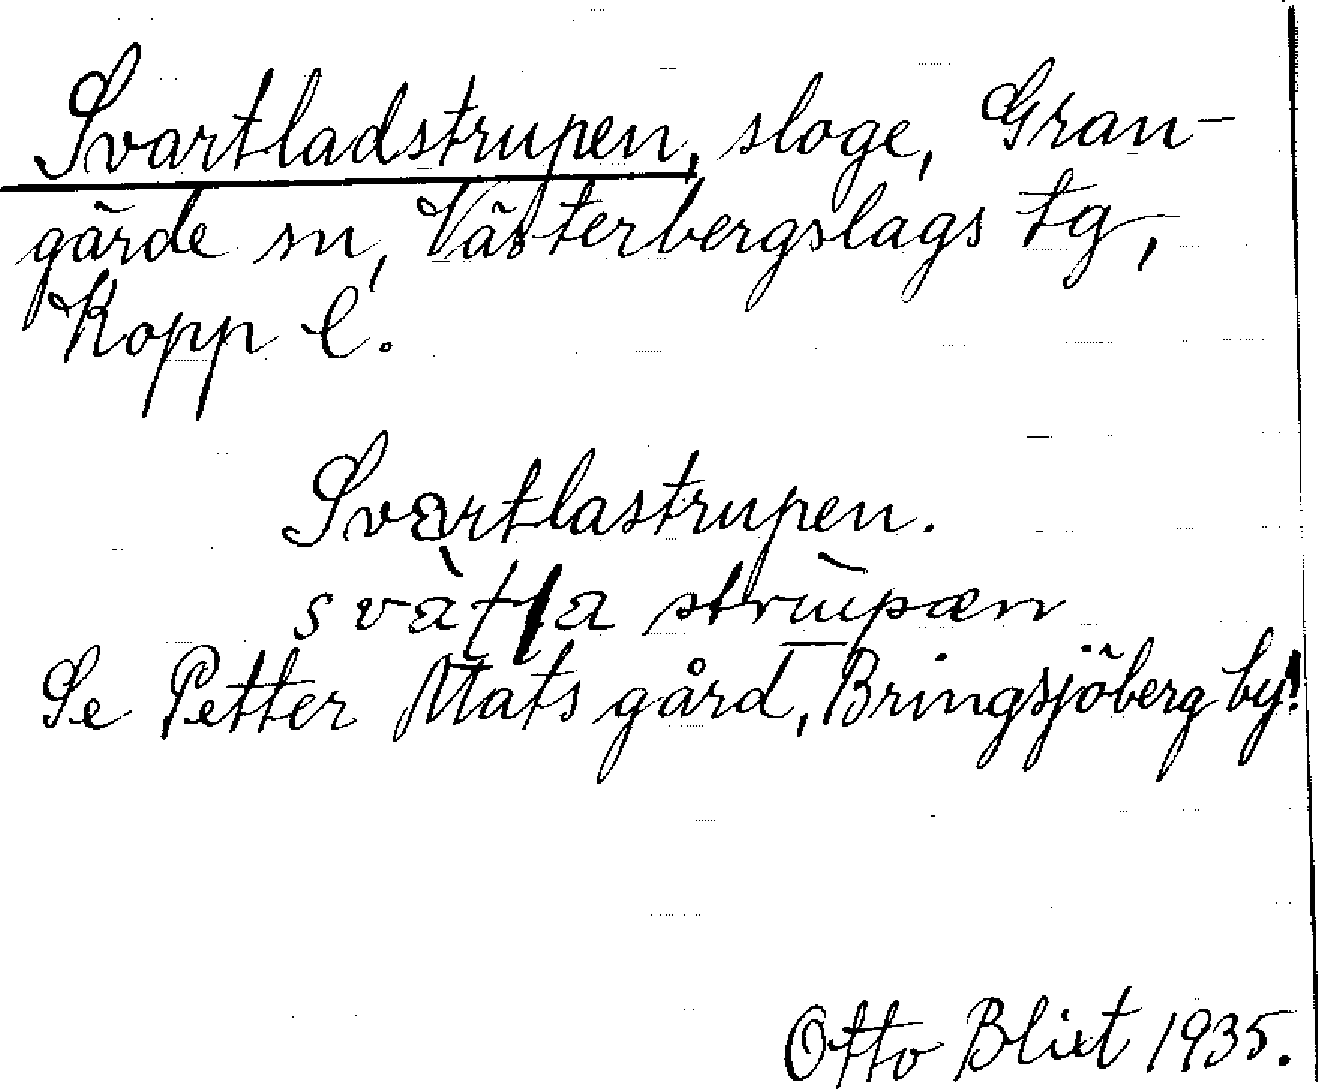 Svartladstrupen, sloge, Gran-
gärde sn, Västerbergslags tg,
Kopp l.
Svartlastrupen.
strupæn
Se Petter Mats gård, Bringsjöberg by!
Otto Blixt 1935.